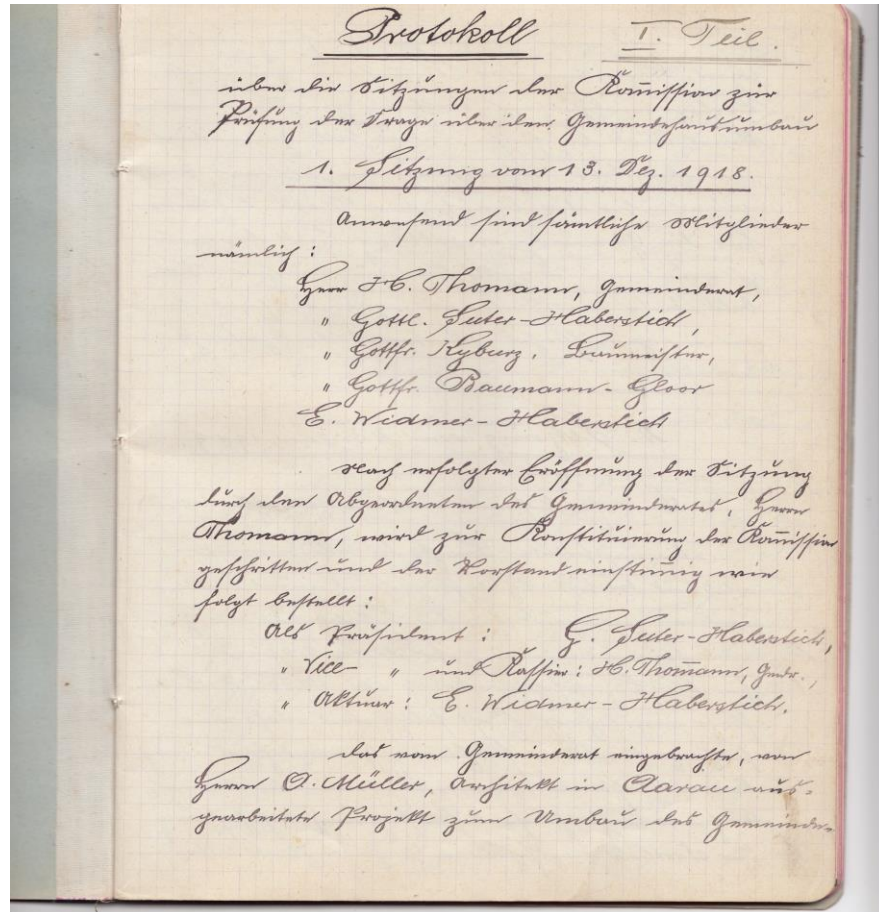 Protokoll I. Teil.
über die Sitzungen der Kom̅ission zur
Prüfung der Frage über den Gemeindehausumbau
1. Sitzung vom 13. Dez. 1918.
Anwesend sind sämtliche Mitglieder
nämlich:
Herr H. Thomann, Gemeinderat,
" Gottl. Suter-Haberstich,
" Gottfr. Kyburz, Baumeister,
" Gottfr. Baumann-Gloor
E. Widmer-Haberstich
Nach erfolgter Eröffnung der Sitzung
durch den Abgeordneten des Gemeinderates, Herrn
Thomann, wird zur Konstituierung der Kom̅ission
geschritten und der Vorstand einstim̅ig wie
folgt bestellt:
Als Präsident: G. Suter-Haberstich,
" Vice- " und Kassier: H. Thom̅ann, Gmdr.,
" Aktuar: E. Widmer-Haberstich.
Das vom Gemeinderat eingebrachte, von
Herrn A. Müller, Architekt in Aarau aus-
gearbeitete Projekt zum Umbau des Gemeinde-